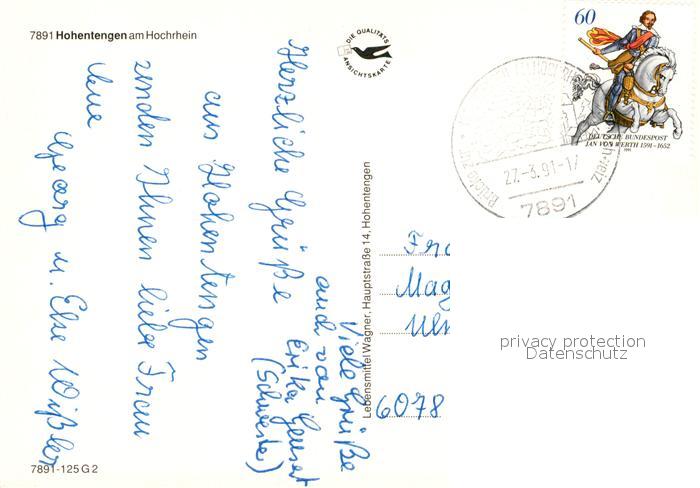 7891 Hohentengen am Hochrhein
DIE QUALITÄTS
ANSICHTSKARTE
60
DEUTSCHE BUNDESPOST
JAN VON WERTH 1591-1652
1991
Brücke zur
27.-3.91-1
7891
Herzliche Grüße
aus Hohentengen
senden Ihnen liebe Frau
Georg u. Else Wißler
Viele Grüße
auch von
Erika
(Schwester)
Lebensmittel Wagner, Hauptstraße 14, Hohentengen
Fra
Mag
6078
privacy protection
Datenschutz
7891-125 G 2